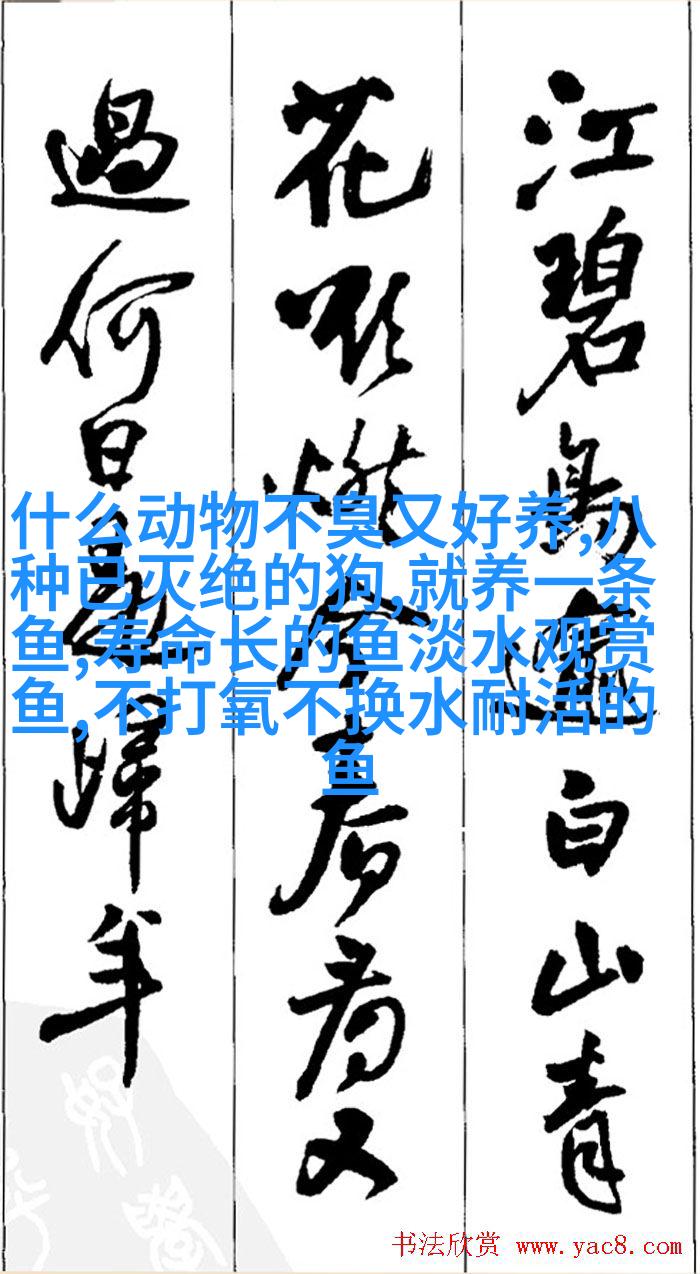 江碧鳥逾白山青
花欲燃今春看又
過何日是歸年
什么动物不臭又好养,八
种已灭绝的狗,就养一条
鱼,寿命长的鱼淡水观赏
鱼,不打氧不换水耐活的
鱼
书法欣赏 www.yac8.com